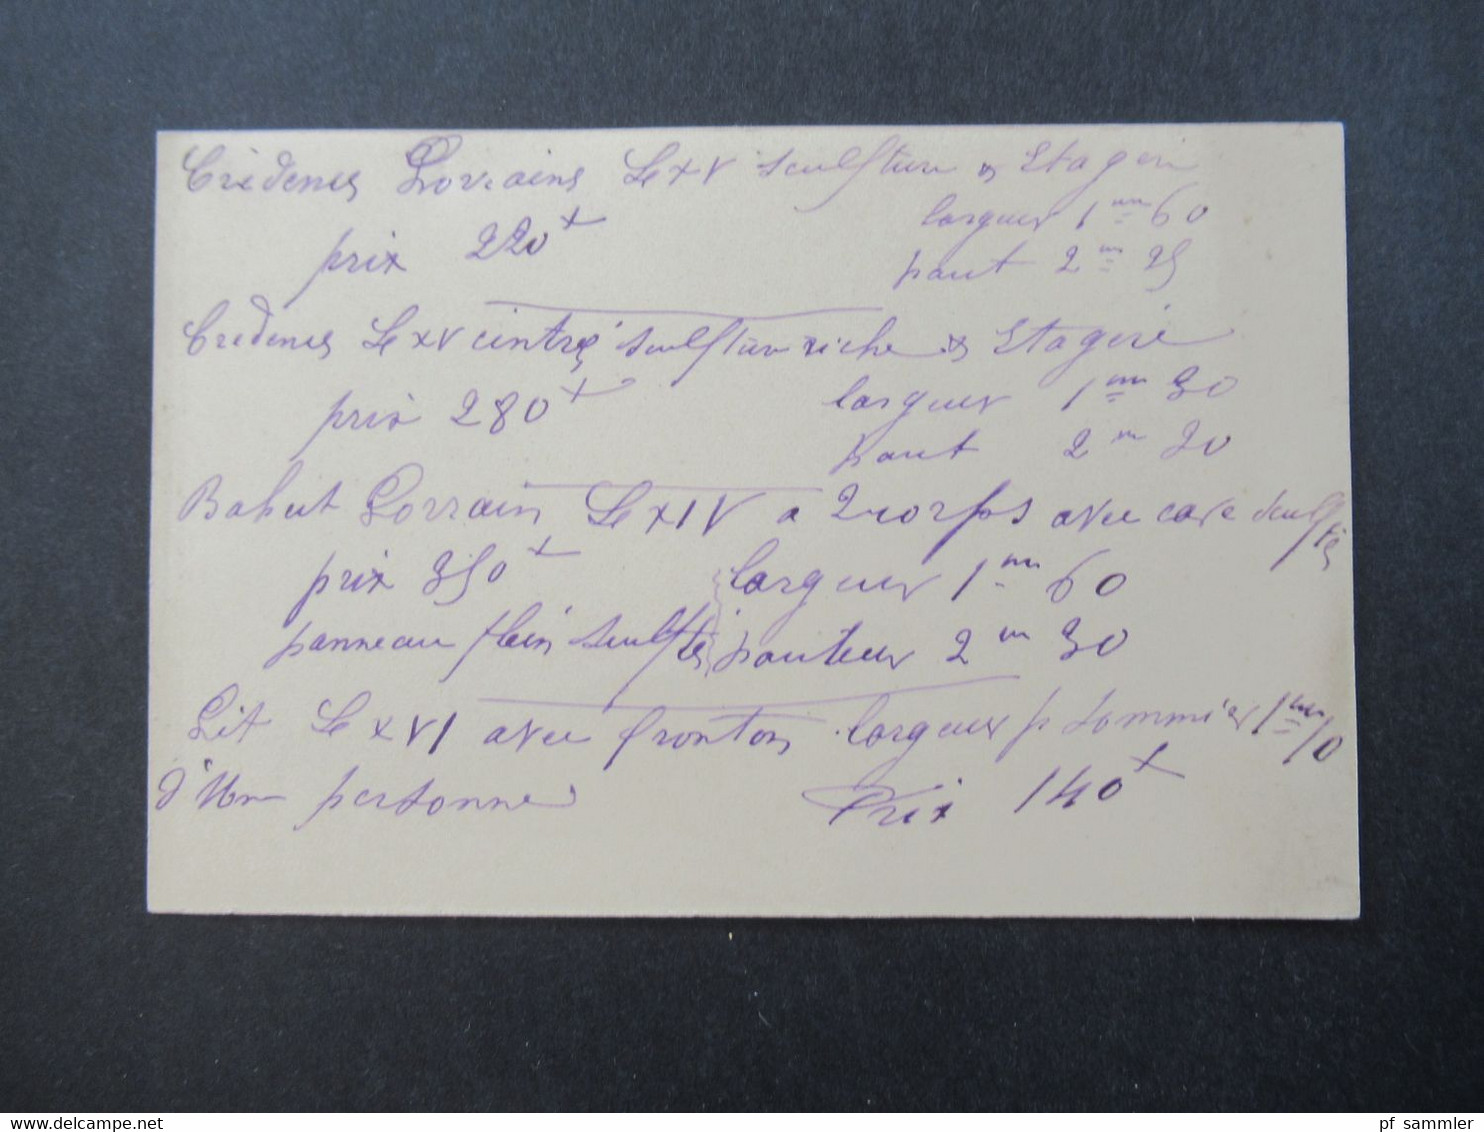 Crédences Lorrains Ls XV sculpture & Etageri
prix 220 x largeur 1 m 60
haut 2 m 25
Credences Ls XV cintré sculpture riche & Etageré
prix 280 x largeur 1 m 30
haut 2 m 20
Bahut Lorrain Ls XIV a 2 corps avec cave sculptés
prix 350 x largeur 1 m 60
panneau plein sculptés hauteur 2 m 30
Lit Ls XVI avec fronton largeur p sommier 1 m 10
d'Une personne Prix 140 x
www.delcampe.net
pf_sammler